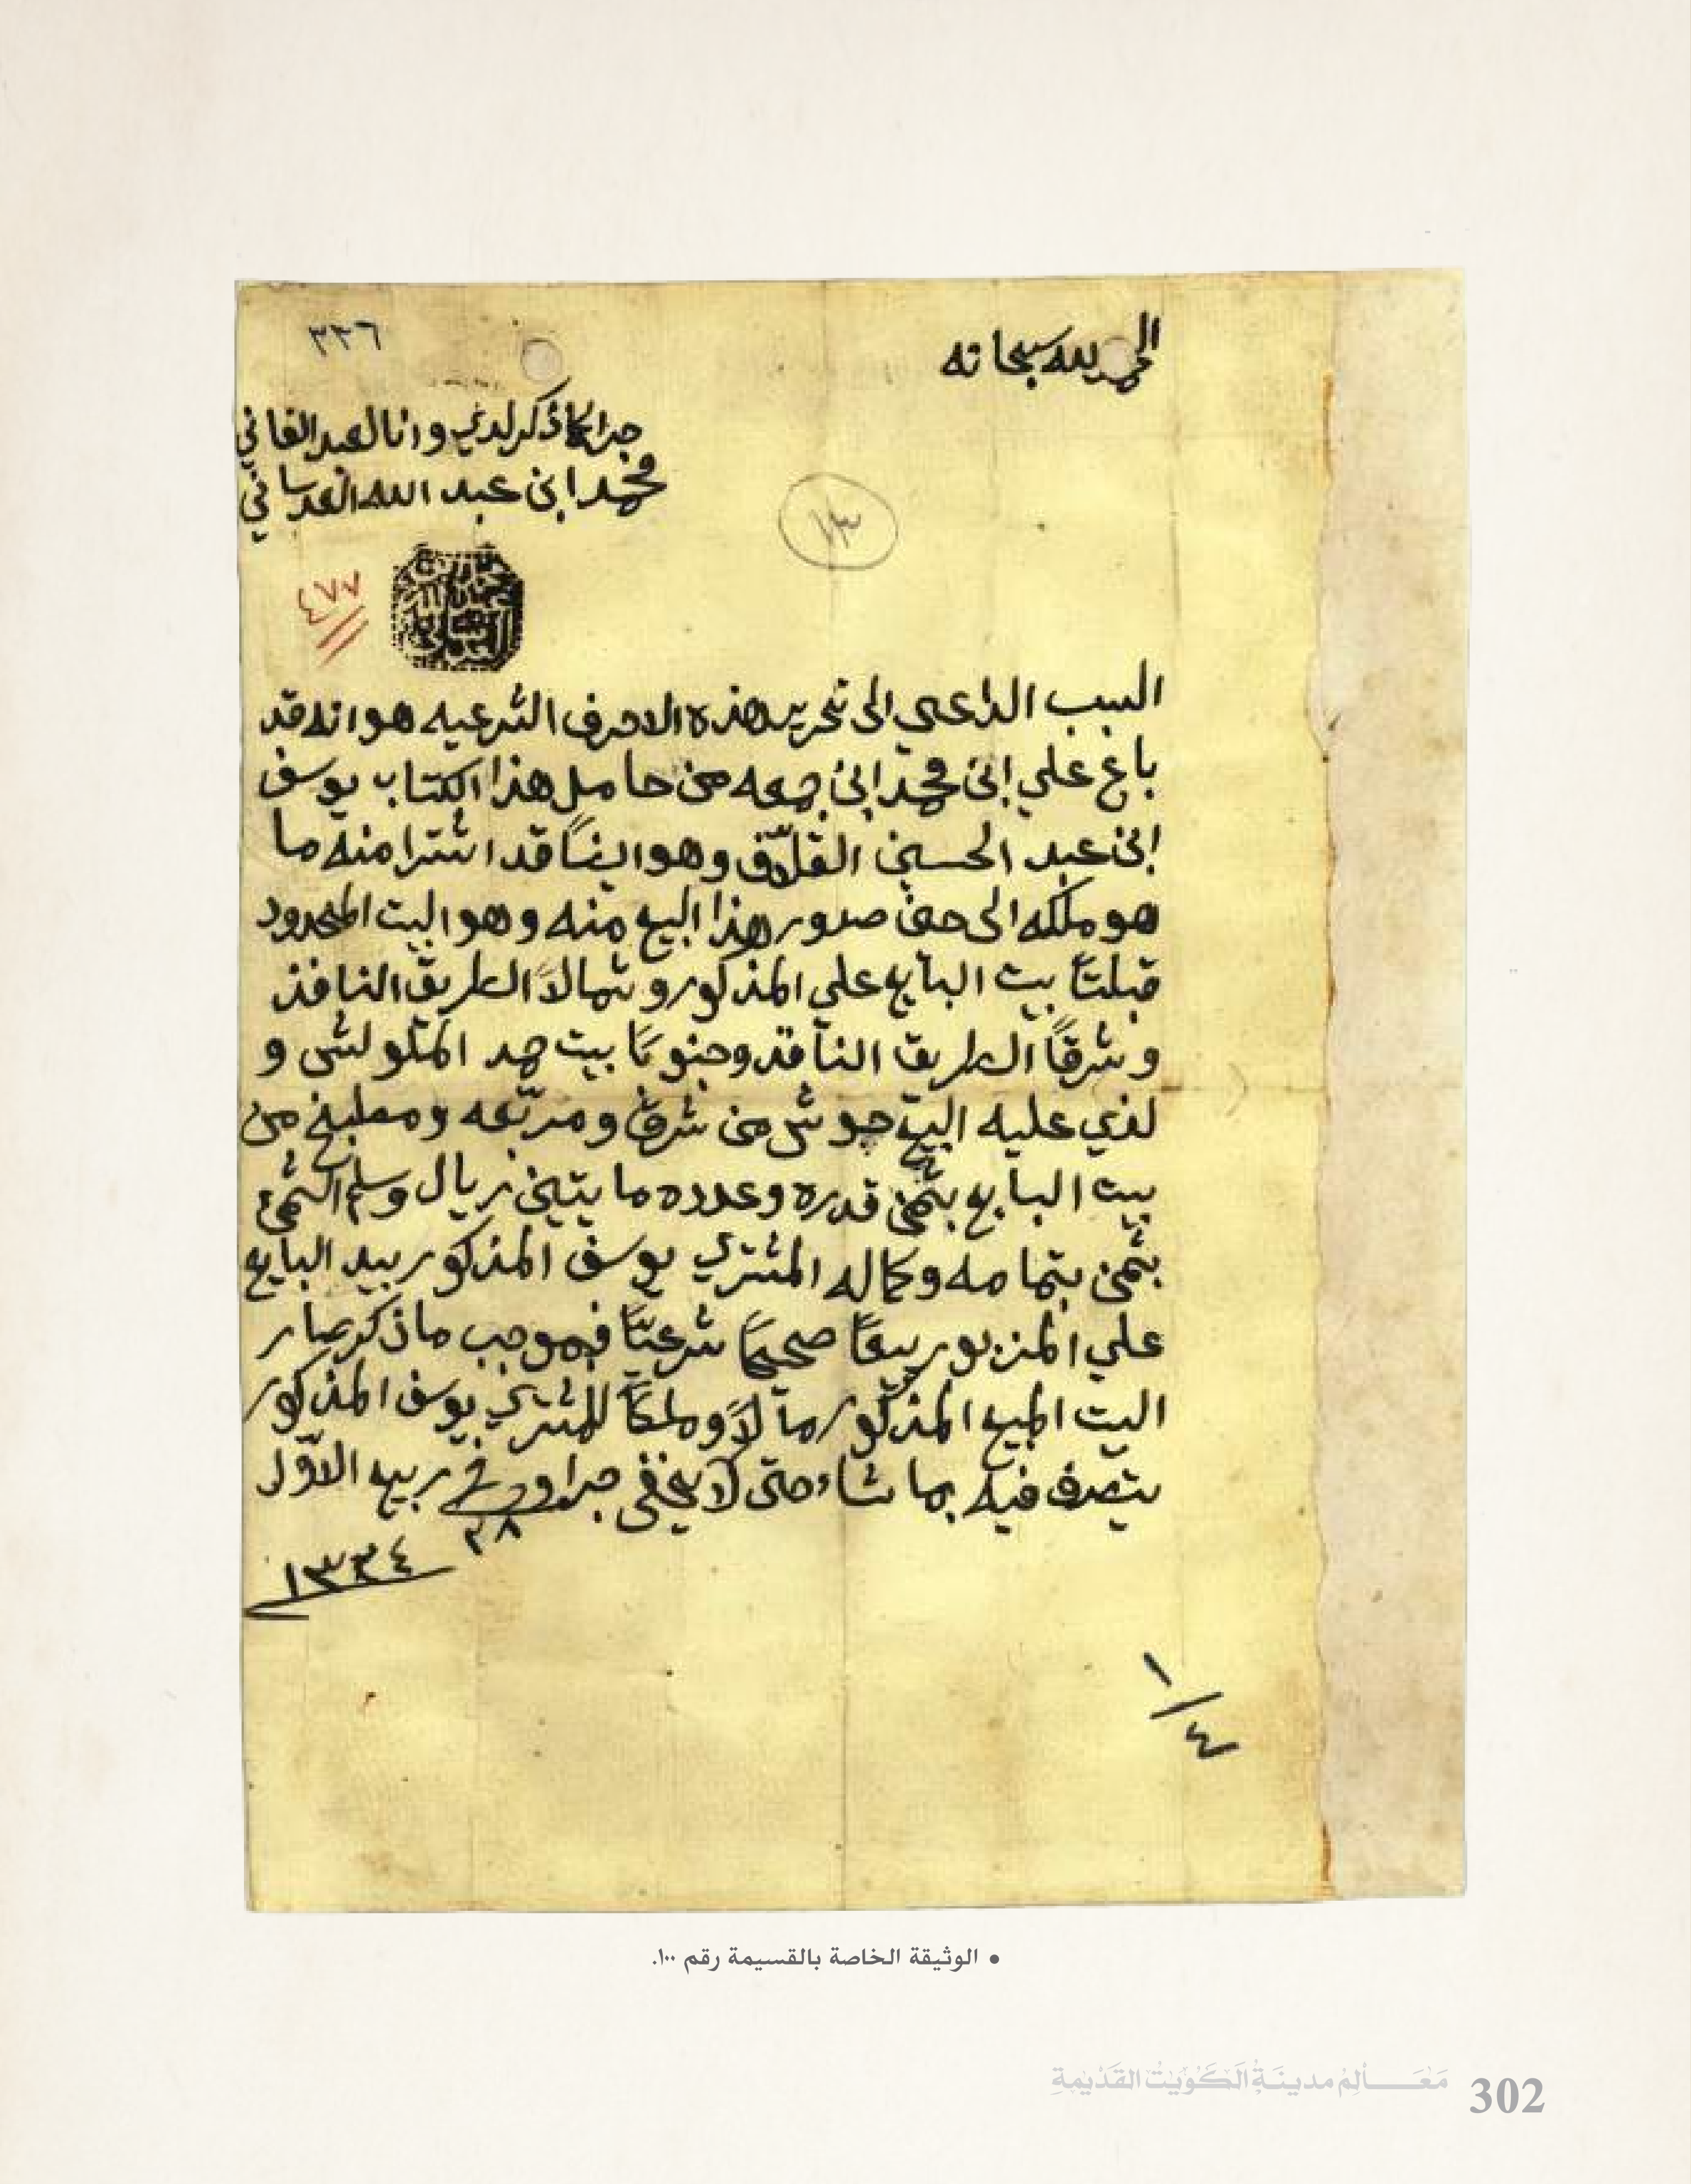 الحمد لله سبحانه
٣٣٦
جرا كما ذكر لدي وانا العبد الفاني
محمد ابن عبد الله العدساني
١٣
٤٧٧
السبب الداعي الى تحرير هذه الاحرف الشرعيه هو انه قد
باع علي ابن محمد ابن جمعه من حامل هذا الكتاب يوسف
ابن عبد الحسين القلاف وهو ايضاً قد اشترا منه ما
هو ملكه الى حين صدور هذا البيع منه وهو البيت المحدود
قبلتاً بيت البايع علي المذكور وشمالاً الطريق النافذ
وشرقاً الطريق النافذ وجنوباً بيت حمد و
لذي عليه البيع حوش من شرقي ومربّعه ومطبخ من
بيت البايع بثمن قدره وعدده مايتين ريال وسلم الثمن
بثمن بتمامه وكماله المشتري يوسف المذكور بيد البايع
علي المزبور بيعاً صحيحاً شرعيّاً فبموجب ما ذكر صار
البيت المبيع المذكور مالاً وملكاً للمشتري يوسف المذكور
يتصرف فيه بما شاء حتى لا يخفى جرا وحرر في ربيع الاوّل
٢٨
١٣٣٤
١/٤
• الوثيقة الخاصة بالقسيمة رقم ١٠٠.
مَعَـــالِمُ مدينَـةِ الكُوَيْتُ القَدْيمَةِ
302